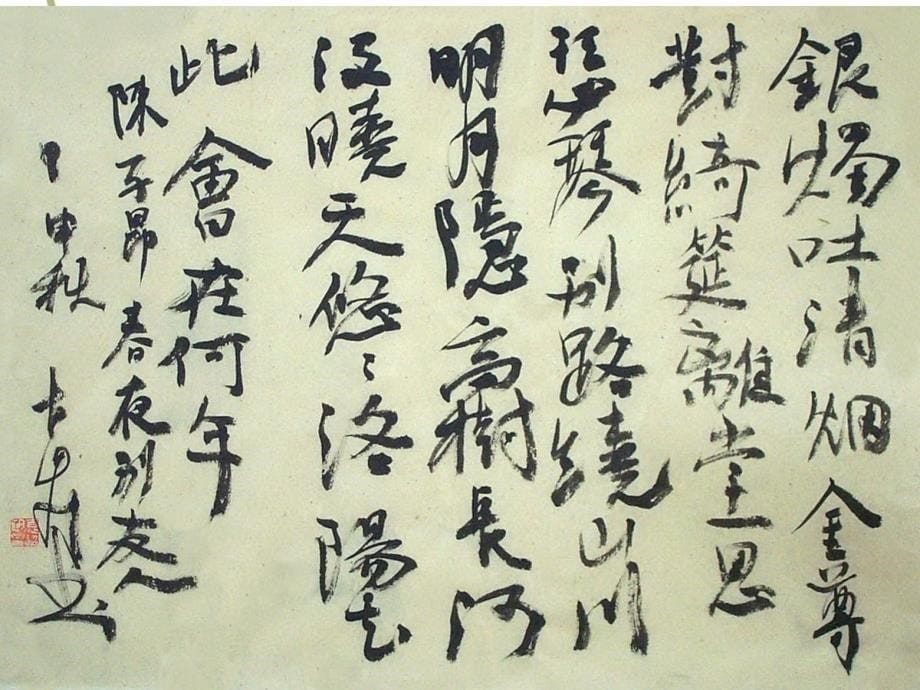 銀燭吐清烟金尊
對綺筵離堂思
瑟琴别路繞山川
明月隱高樹長河
沒曉天悠〻洛陽去
此會在何年
陳子昂春夜别友人
申秋 书